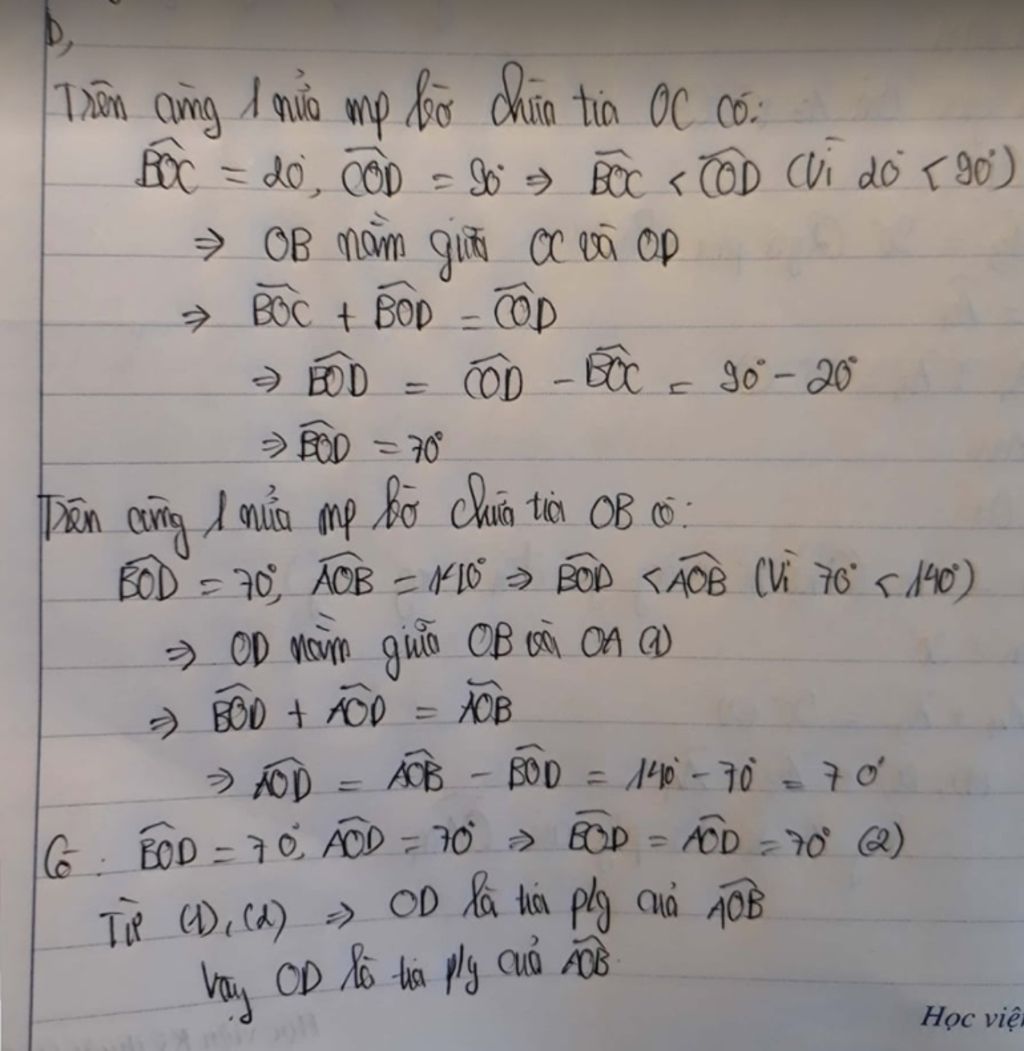 b,
Trên cùng 1 nửa mp bờ chứa tia OC có:
BOC = 20°, COD = 90° ⇒ BOC < COD (Vì 20° < 90°)
⇒ OB nằm giữa OC và OD
⇒ BOC + BOD = COD
⇒ BOD = COD - BOC = 90° - 20°
⇒ BOD = 70°
Trên cùng 1 nửa mp bờ chứa tia OB có:
BOD = 70°, AOB = 140° ⇒ BOD < AOB (Vì 70° < 140°)
⇒ OD nằm giữa OB và OA (1)
⇒ BOD + AOD = AOB
⇒ AOD = AOB - BOD = 140° - 70° = 70°
Có: BOD = 70°, AOD = 70° ⇒ BOD = AOD = 70° (2)
Từ (1), (2) ⇒ OD là tia p/g của AOB
Vậy OD là tia p/g của AOB.
Học việ